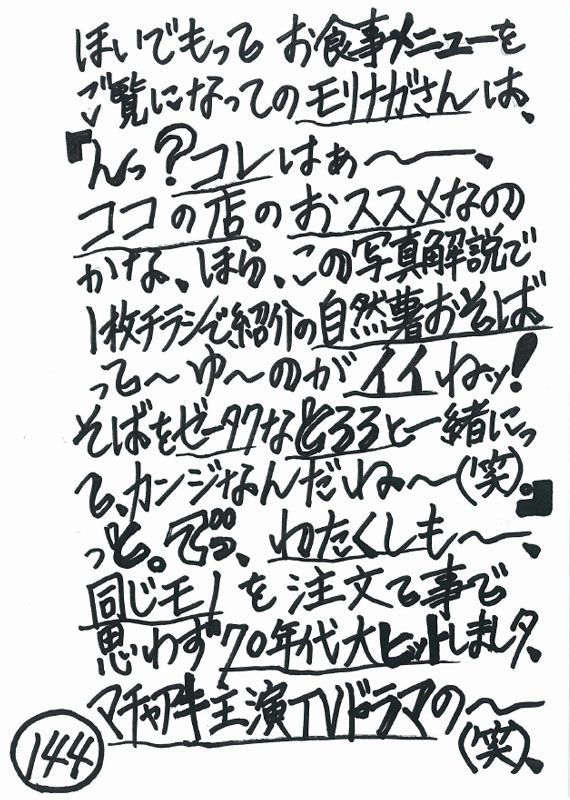 ほいでもって お食事メニューを
ご覧になってのモリナガさんは、
『んっ?コレはぁ〜〜、
ココの店のおススメなの
かな、ほら、この写真解説で
1枚チラシで、紹介の自然薯おそば
って〜ゆ〜のがイイねッ!
そばをゼータクなとろろと一緒にっ
て、カンジなんだね〜(笑)。』
っと。でﾞ、わたくしも〜、
同じモノを注文て事で
思わず"70年代大ヒットしました、
マチャアキ主演TVドラマの〜
(笑)、
144